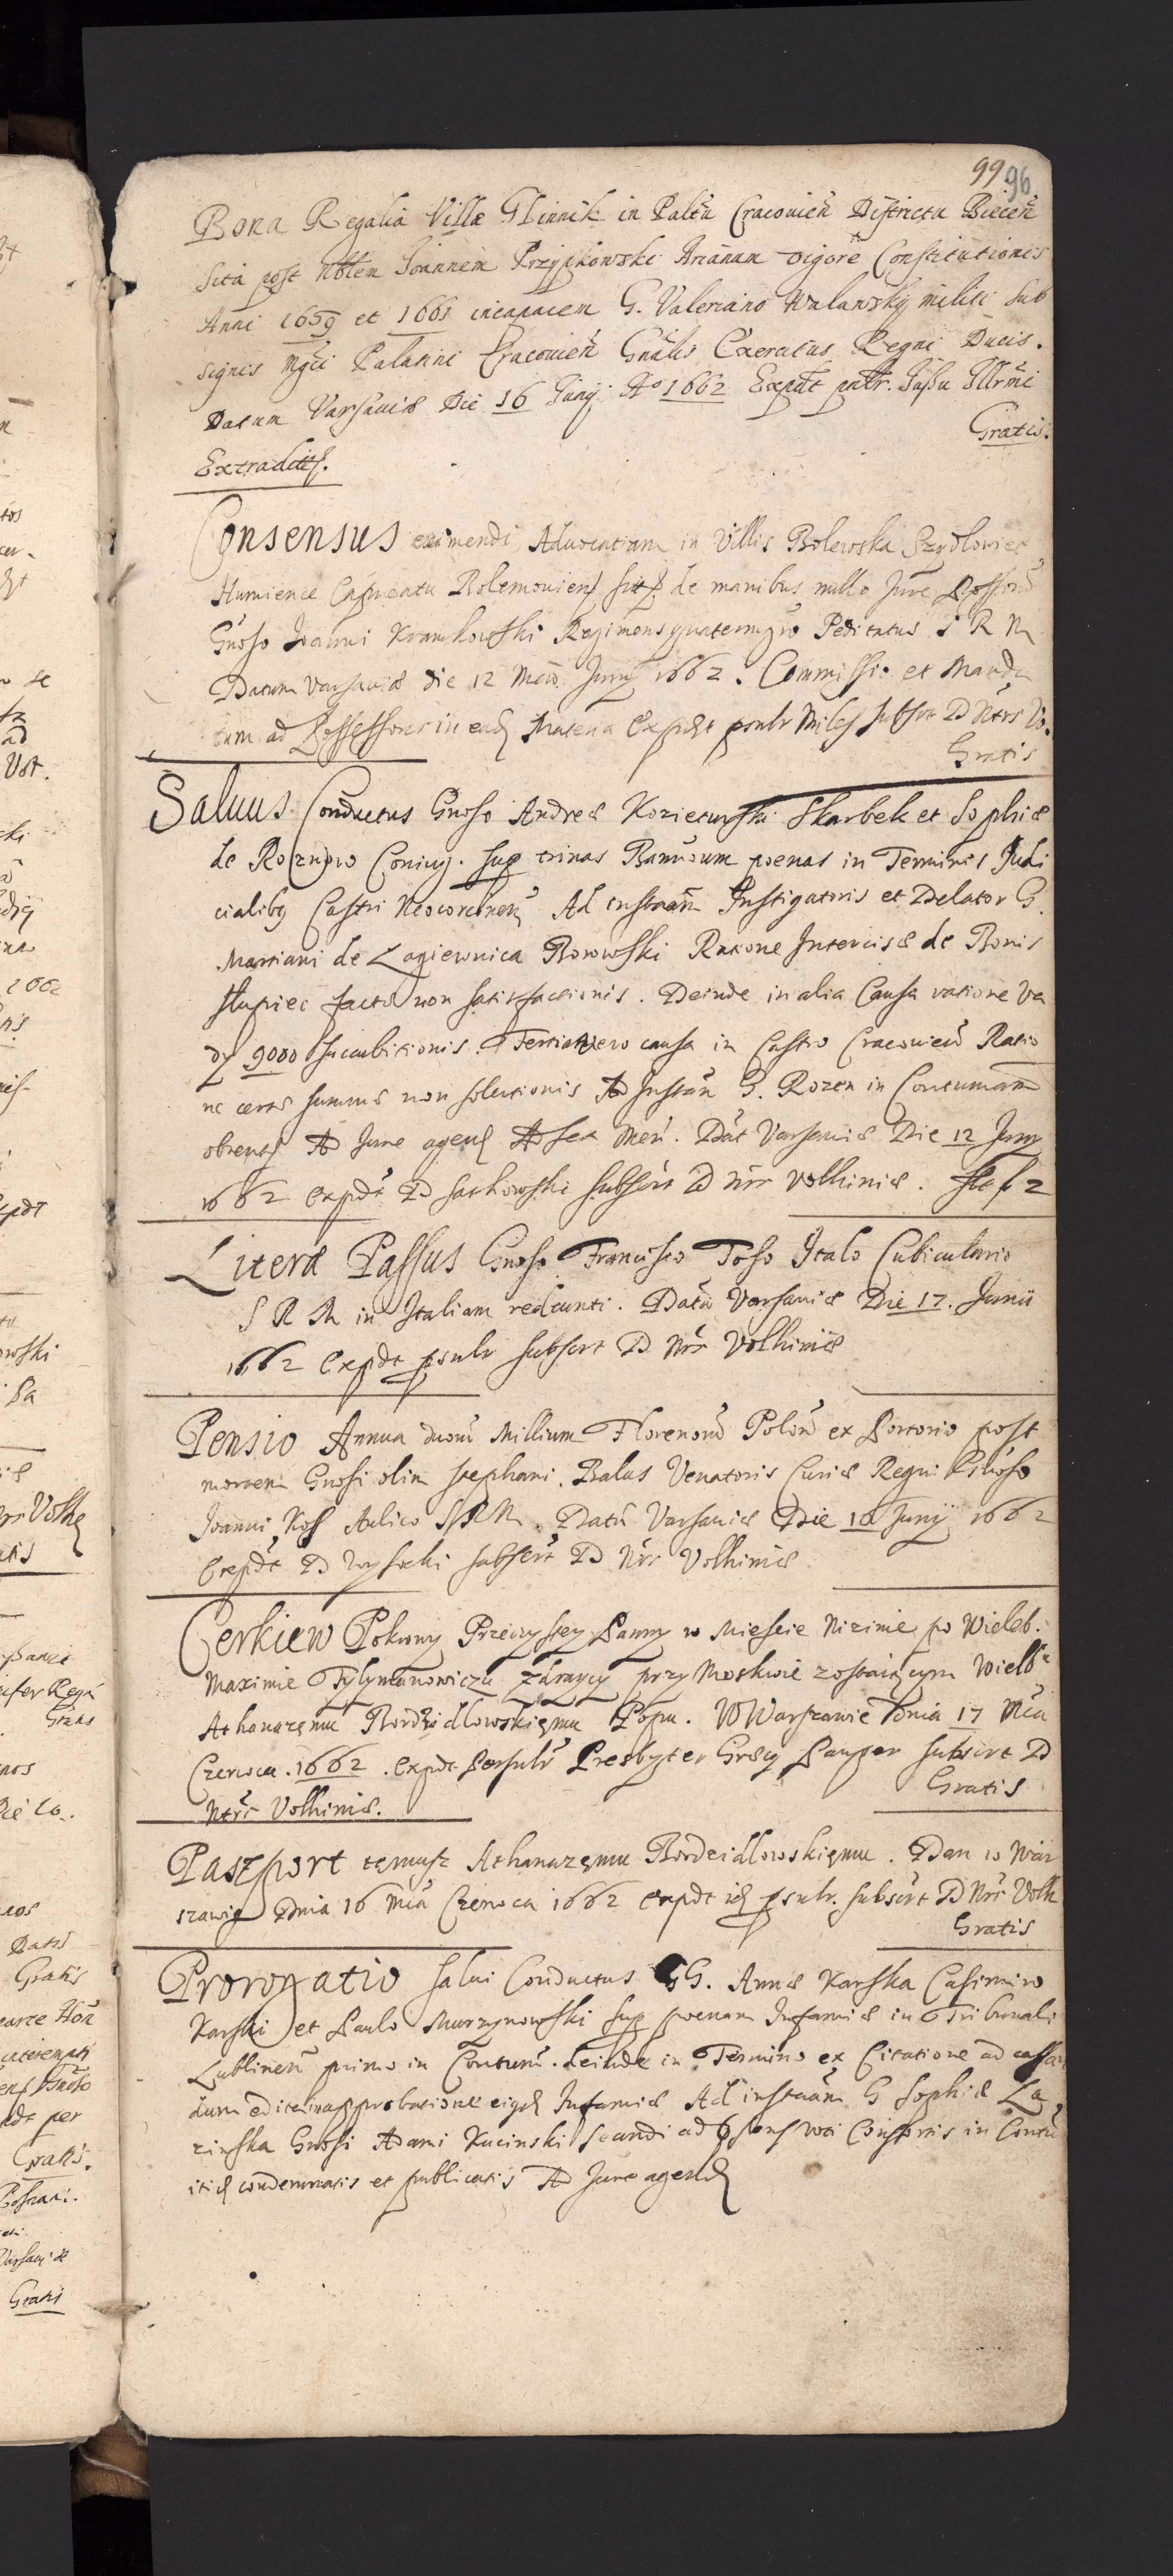 99 96
Bona Regalia Villæ Glinnik in Paltũ Cracouień Districtu Bieceń
sita post Nblem Joannem Przypkowski Arianum vigore Constitutionis
Anni 1659 et 1661 incapacem G. Valeriano militi sub
signis Mgci Palatini Cracouień Gnalis Exercitus Regni Ducis.
Datum Varsauiæ Die 16 Junij Aº 1662 Expdt Jussu Illrmi
Gratis.
Consensus eximendi Aduocatiam in Villis Bolewska Szydlowiec
de manibus nullo Jure Possord
Gnoso Joanni Kramkowski Peditatus S R M
Datum Varsauiæ die 12 Mens Junij 1662. Commissio et Manda
tum ad Possessores in ead Materia Expdt Miles subscr D Ntrs Vo.
Gratis
Saluus Conductus Gnoso Andreæ Skarbek et Sophiæ
de Coniug. sup trinas Bannorum poenas in Terminis Judi
cialibg Castri Ad instaam Instigatoris et Delator G.
Martiani de Lagiewnica Borowski Ratione Intercisæ de Bonis
Slupiec facto non satisfactionis. Deinde in alia Causa ratione Va
dy 9000 succubitionis. Tertia vero causa in Castro Cracouień Ratio
ne certæ summæ non solutionis Ad Instan G. Rozen in Contumam
obtent Ad Jure agend Ad sex Men. Dat Varsauiæ Die 12 Juny
1662 expdt D Sarkowski subscrt D Ntr Volhiniæ.
Literæ Passus Gnoso Francisco Toso Italo Cubiculario
S R M in Italiam redeunti. Datũ Varsauiæ Die 17. Junii
1662 Expdt psulr subscrt D Ntr Volhiniæ
Pensio Annua duorũ Millium Florenorũ Polon ex Portorio post
mortem Gnosi olim Stephani Balas Venatoris Curiæ Regni Gnoso
Joanni Kos Aulico S R M. Datũ Varsauiæ Die 10 Junij 1662
Expdt D Wysocki subscrt D Ntr Volhiniæ
Cerkiew Pokrowy Przeczystey Panny w Miescie Nizinie po Wieleb.
Maximie zdraycy przy Moskwie zostaiącym Wielb
Athanazęmu Popu. W Warszawie Dnia 17 Mca
Czerwca. 1662. Expdt Persulr Presbyter Græcy Pauper subscrt D
Gratis
Ntrs Volhiniæ.
Paszport temusz Athanazęmu Bordzidlowskięmu. Dan w War
szawie Dnia 16 Mca Czerwca 1662 expdt id psulr. subscrt D Ntr Volh
Gratis
Prorogatio Salui Conductus GG. Annæ Karska Casimiro
Karski et Paulo Murzynowski sup poenam Infamiæ in Tribunali
Lublineń primo in Contum. deinde in Termino ex Citatione ad cassan
dum approbatione eigd Infamiæ Ad instaam G Sophiæ
Gnosi Adami Kucinski secundi Consortis in Contu
itid condemnatis et publicatis Ad Jure agend